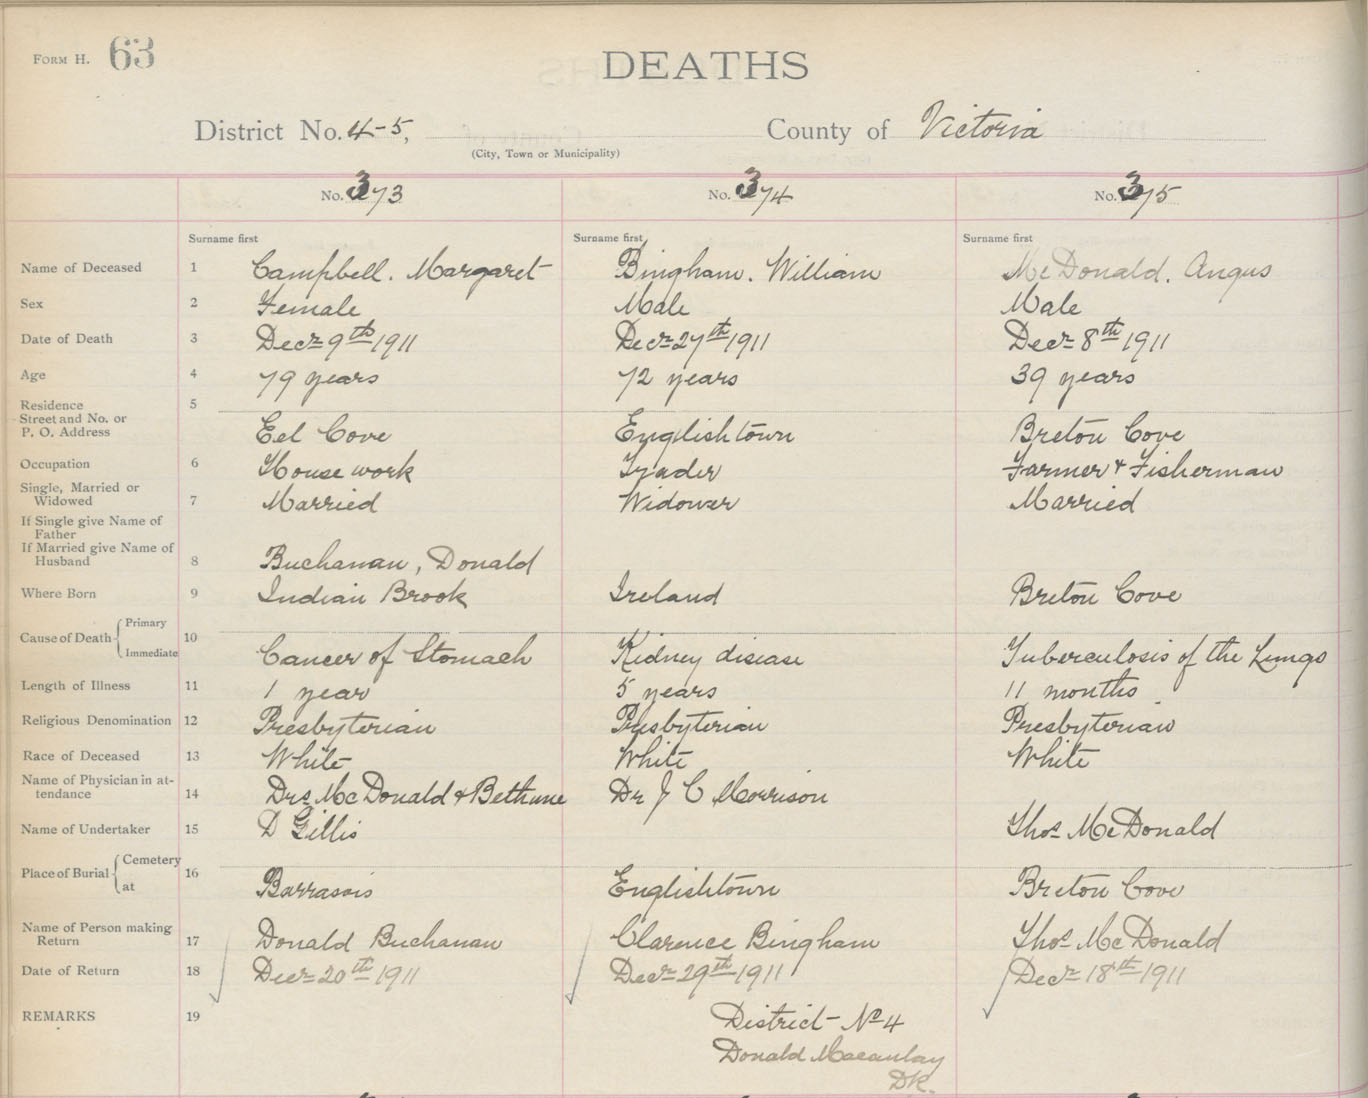 FORM H. 63
DEATHS
District No. 4-5, County of Victoria
(City, Town or Municipality)
No. 373 No. 374 No. 375
Surname first Surname first Surname first
Name of Deceased 1 Campbell. Margaret Bingham. William McDonald. Angus
Sex 2 Female Male Male
Date of Death 3 Decr 9th 1911 Decr 27th 1911 Decr 8th 1911
Age 4 79 years 72 years 39 years
Residence 5
Street and No. or
P. O. Address Eel Cove Englishtown Breton Cove
Occupation 6 House work Trader Farmer & Fisherman
Single, Married or
Widowed 7 Married Widower Married
If Single give Name of
Father
If Married give Name of
Husband 8 Buchanan, Donald
Where Born 9 Indian Brook Ireland Breton Cove
Cause of Death { Primary
Immediate 10 Cancer of Stomach Kidney disease Tuberculosis of the Lungs
Length of Illness 11 1 year 5 years 11 months
Religious Denomination 12 Presbyterian Presbyterian Presbyterian
Race of Deceased 13 White White White
Name of Physician in at-
tendance 14 Drs McDonald & Bethune Dr J C Morrison
Name of Undertaker 15 D Gillis Thos McDonald
Place of Burial { Cemetery
at 16 Barrasois Englishtown Breton Cove
Name of Person making
Return 17 Donald Buchanan Clarence Bingham Thos McDonald
Date of Return 18 Decr 20th 1911 Decr 29th 1911 Decr 18th 1911
REMARKS 19 District No 4
Donald Macaulay
DR.